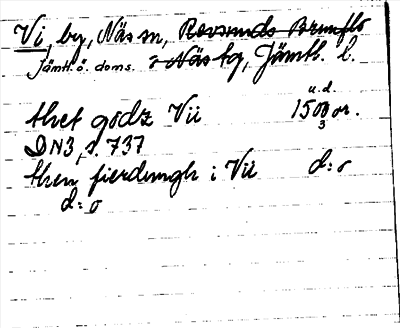 Vi, by, Näs sn, Revsunds Brunflo
Jämtl. ö. doms. o Näs tg, Jämtl. l.
u.d.
thet godz Vii 1500 or.
3
DN3, s. 737
then fierdungh i Vii d:o
d:o